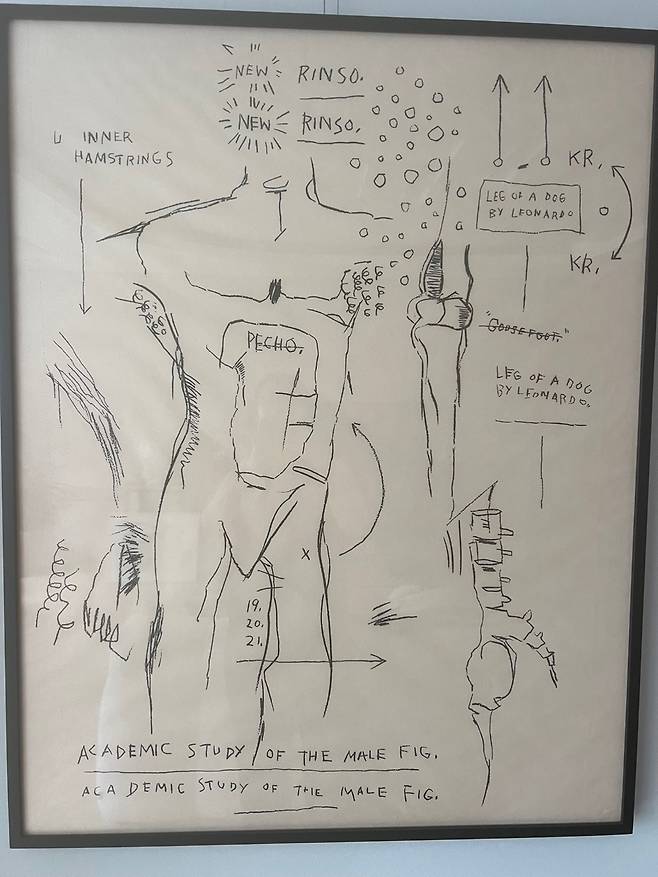 NEW RINSO.
NEW RINSO.
U INNER
HAMSTRINGS
KR.
LEG OF A DOG
BY LEONARDO
KR.
PECHO.
"GOOSEFOOT."
LEG OF A DOG
BY LEONARDO.
X
19.
20.
21.
ACADEMIC STUDY OF THE MALE FIG.
ACADEMIC STUDY OF THE MALE FIG.